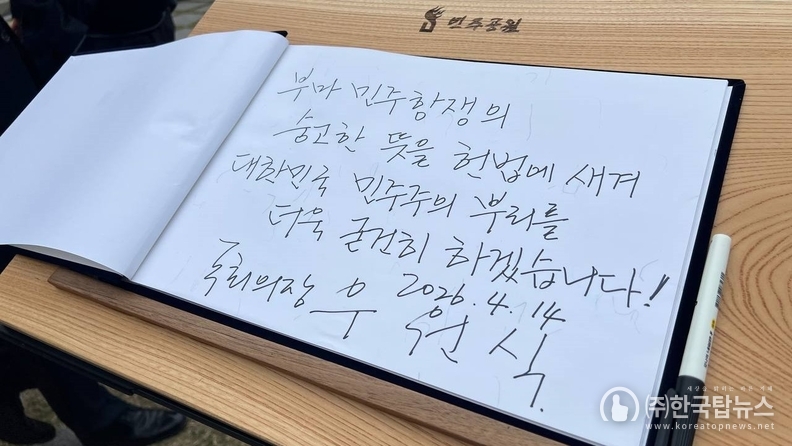 민주공원
부마 민주항쟁의
숭고한 뜻을 헌법에 새겨
대한민국 민주주의 뿌리를
더욱 굳건히 하겠습니다!
2026. 4. 14
국회의장 우 원 식.
세상을 탑하는 바른 지혜
(주)한국탑뉴스
www.koreatopnews.net